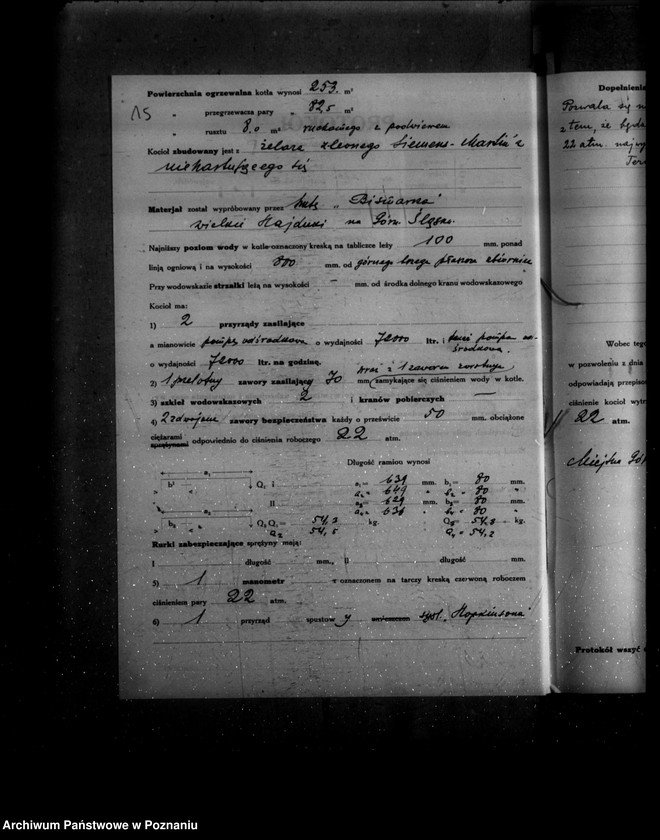 15
Powierzchnia ogrzewalna kotła wynosi 253. m²
" przegrzewacza pary 82,5 m²
" rusztu 8.0 m² ruchomego z podwiewem
Kocioł zbudowany jest z żelaza zlewnego Siemens-Martin'a
niehartującego się
Materjał został wypróbowany przez hutę "Bismarka"
Wielkie Hajduki na Górn. Śląsku.
Najniższy poziom wody w kotle oznaczony kreską na tabliczce leży 100 mm. ponad
linją ogniową i na wysokości 800 mm. od górnego brzegu płaszcza zbiornica
Przy wodowskazie strzałki leżą na wysokości — mm. od środka dolnego kranu wodowskazowego
Kocioł ma:
1) 2 przyrządy zasilające
a mianowicie pompę odśrodkową o wydajności 72000 ltr. i pompa od-
środkowa.
o wydajności 72000 ltr. na godzinę.
wraz z 1 zaworem zwrotnym
2) 1 przelotny zawory zasilający 70 mm zamykające się ciśnieniem wody w kotle.
3) szkieł wodowskazowych 2 i kranów pobierczych —
4) 2 zdwojone zawory bezpieczeństwa każdy o prześwicie 50 mm. obciążone
ciężarami
sprężynami odpowiednio do ciśnienia roboczego 22 atm.
Długość ramion wynosi
a₁ Q₁ I a₁= 631 mm. b₁= 80 mm.
b¹ a₂ " 649 " b₂ " 80 "
II a₂= 629 mm. b₂= 80 mm.
a₂ " 631 " b₂ " 80 "
b₂ Q₂ Q₁ = 54,3 kg. Q₂= 54,8 kg.
Q₂ = 54,5 Q₂ = 54,2
Rurki zabezpieczające sprężyny mają:
I długość mm., II długość mm.
5) 1 manometr z oznaczonem na tarczy kreską czerwoną roboczem
ciśnieniem pary 22 atm.
6) 1 przyrząd spustowy syst. "Hopkinsona"
Dopełnienie
Pozwala się
z tem, że będą
22 atm.
Wobec tego
w pozwoleniu z dnia
odpowiadają przepisom
ciśnienie kocioł wytrz
22 atm.
Protokół wszyć
Archiwum Państwowe w Poznaniu